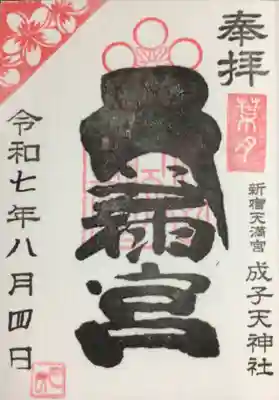 奉拝
葉月
新宿天満宮 成子天神社
天満宮
令和七年八月四日